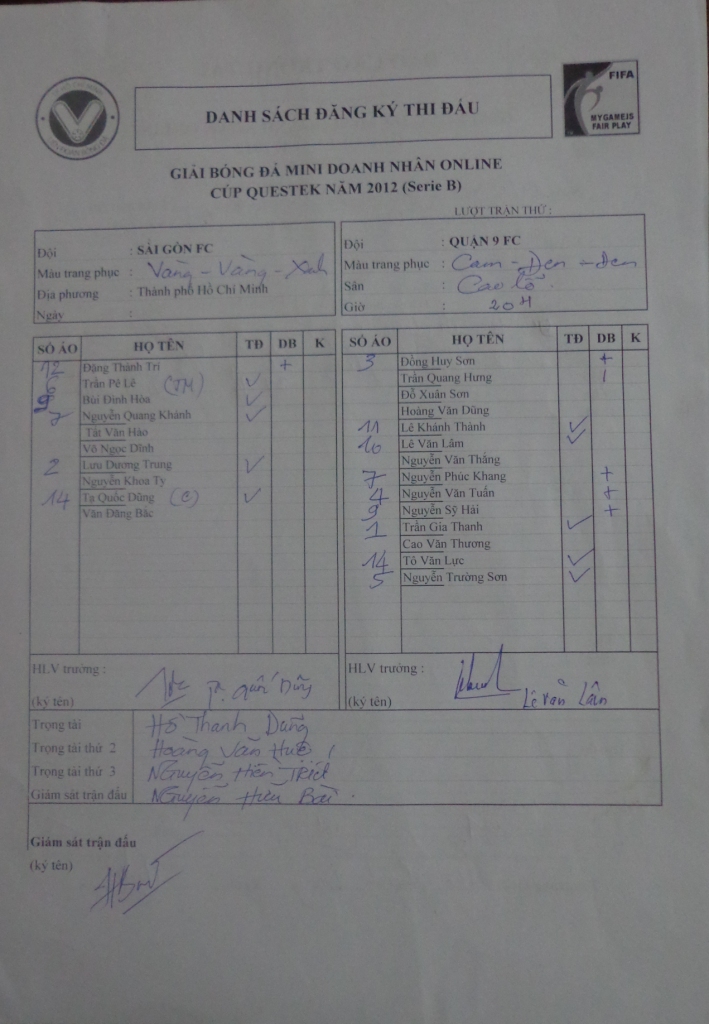 DANH SÁCH ĐĂNG KÝ THI ĐẤU
FIFA
MY GAME IS
FAIR PLAY
GIẢI BÓNG ĐÁ MINI DOANH NHÂN ONLINE
CÚP QUESTEK NĂM 2012 (Serie B)
LƯỢT TRẬN THỨ :
Đội : SÀI GÒN FC
Màu trang phục : Vàng - Vàng - Xanh
Địa phương : Thành phố Hồ Chí Minh
Ngày :
Đội : QUẬN 9 FC
Màu trang phục : Cam - Đen - Đen
Sân : Cao lỗ
Giờ : 20H
SỐ ÁO HỌ TÊN TĐ DB K
12 Đặng Thành Trí +
6 Trần Pê Lê (TM) ✓
9 Bùi Đình Hòa ✓
7 Nguyễn Quang Khánh ✓
Tất Văn Hảo
Võ Ngọc Dĩnh
2 Lưu Dương Trung ✓
Nguyễn Khoa Ty
14 Tạ Quốc Dũng (C) ✓
Văn Đăng Bắc
SỐ ÁO HỌ TÊN TĐ DB K
3 Đồng Huy Sơn +
Trần Quang Hưng
Đỗ Xuân Sơn
Hoàng Văn Dũng
11 Lê Khánh Thành ✓
16 Lê Văn Lâm ✓
Nguyễn Văn Thắng
7 Nguyễn Phúc Khang +
4 Nguyễn Văn Tuấn +
9 Nguyễn Sỹ Hải +
1 Trần Gia Thanh ✓
Cao Văn Thương
14 Tô Văn Lực ✓
5 Nguyễn Trường Sơn ✓
HLV trưởng :
(ký tên) Quốc Dũng
HLV trưởng :
(ký tên) Lê Văn Lân
Trọng tài Hồ Thanh Dũng
Trọng tài thứ 2 Hoàng Văn Huê
Trọng tài thứ 3 Nguyễn Hiền Triết
Giám sát trận đấu Nguyễn Hữu Bài
Giám sát trận đấu
(ký tên)